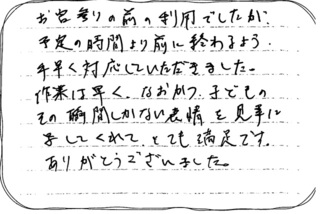 お宮参りの前の利用でしたが、
予定の時間より前に終わるよう、
手早く対応していただきました。
作業は早く、なおかつ、子どもの
その瞬間しかない表情を見事に
写してくれて、とても満足です。
ありがとうございました。